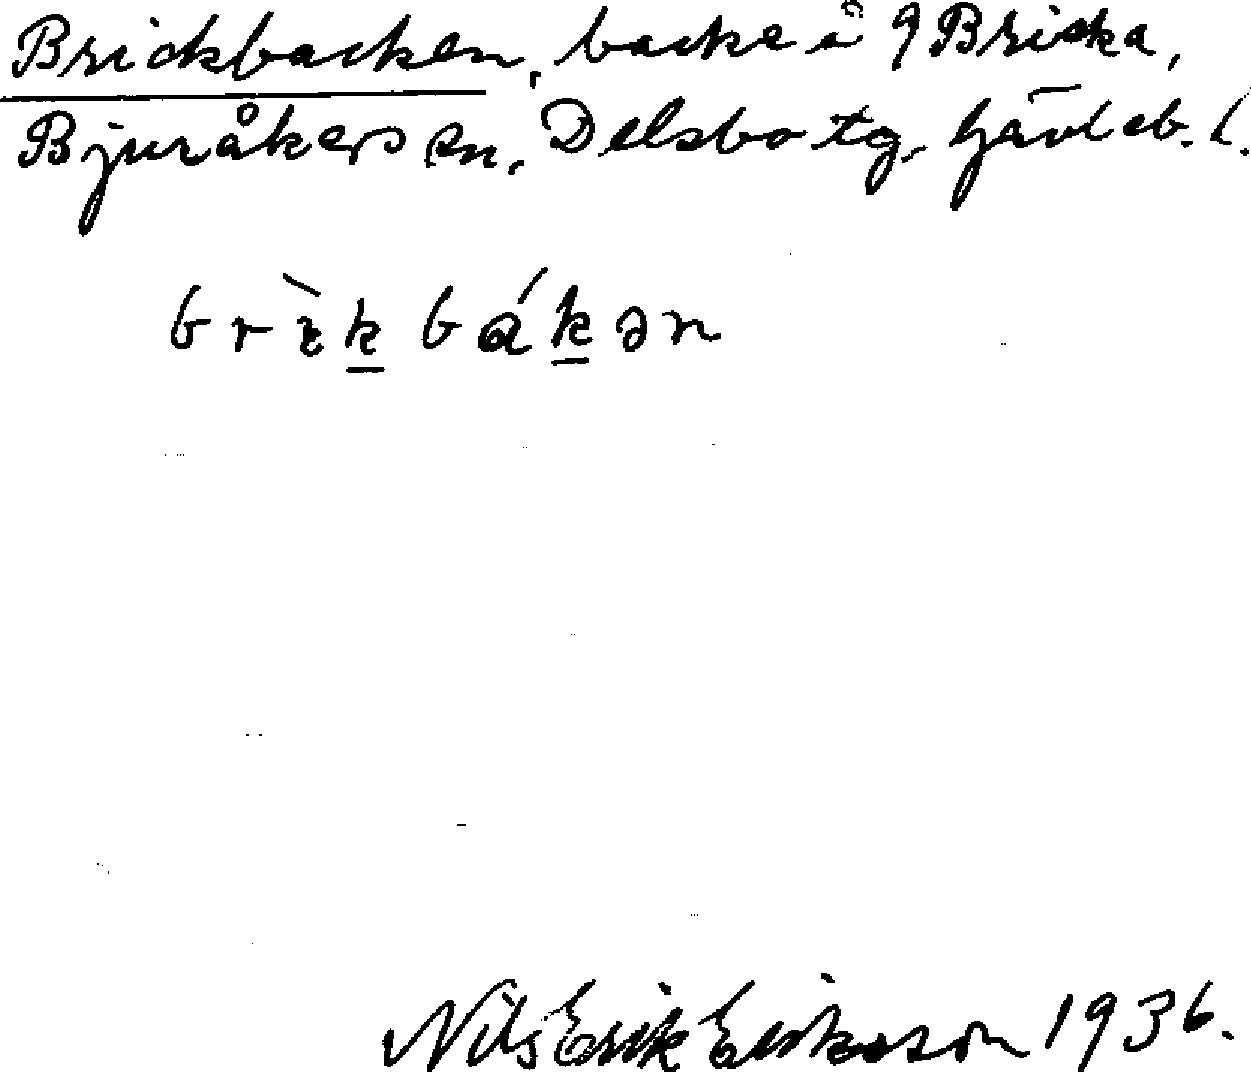 Brickbacken, backe i q Bricka,
Bjuråkers sn, Delsbo tg, Gävleb. l.
brìkbákən
Nils Erik Eriksson 1936.